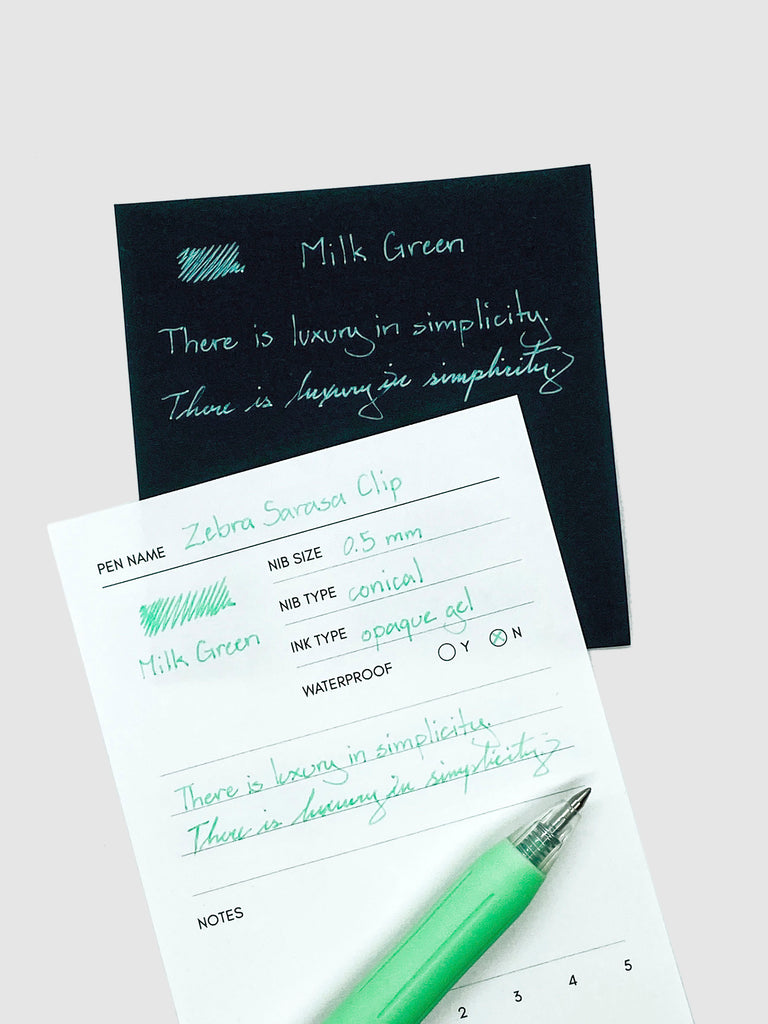 Milk Green
There is luxury in simplicity.
There is luxury in simplicity.
PEN NAME Zebra Sarasa Clip
NIB SIZE 0.5 mm
NIB TYPE conical
INK TYPE opaque gel
Milk Green
WATERPROOF Y N
There is luxury in simplicity.
There is luxury in simplicity.
NOTES
2 3 4 5